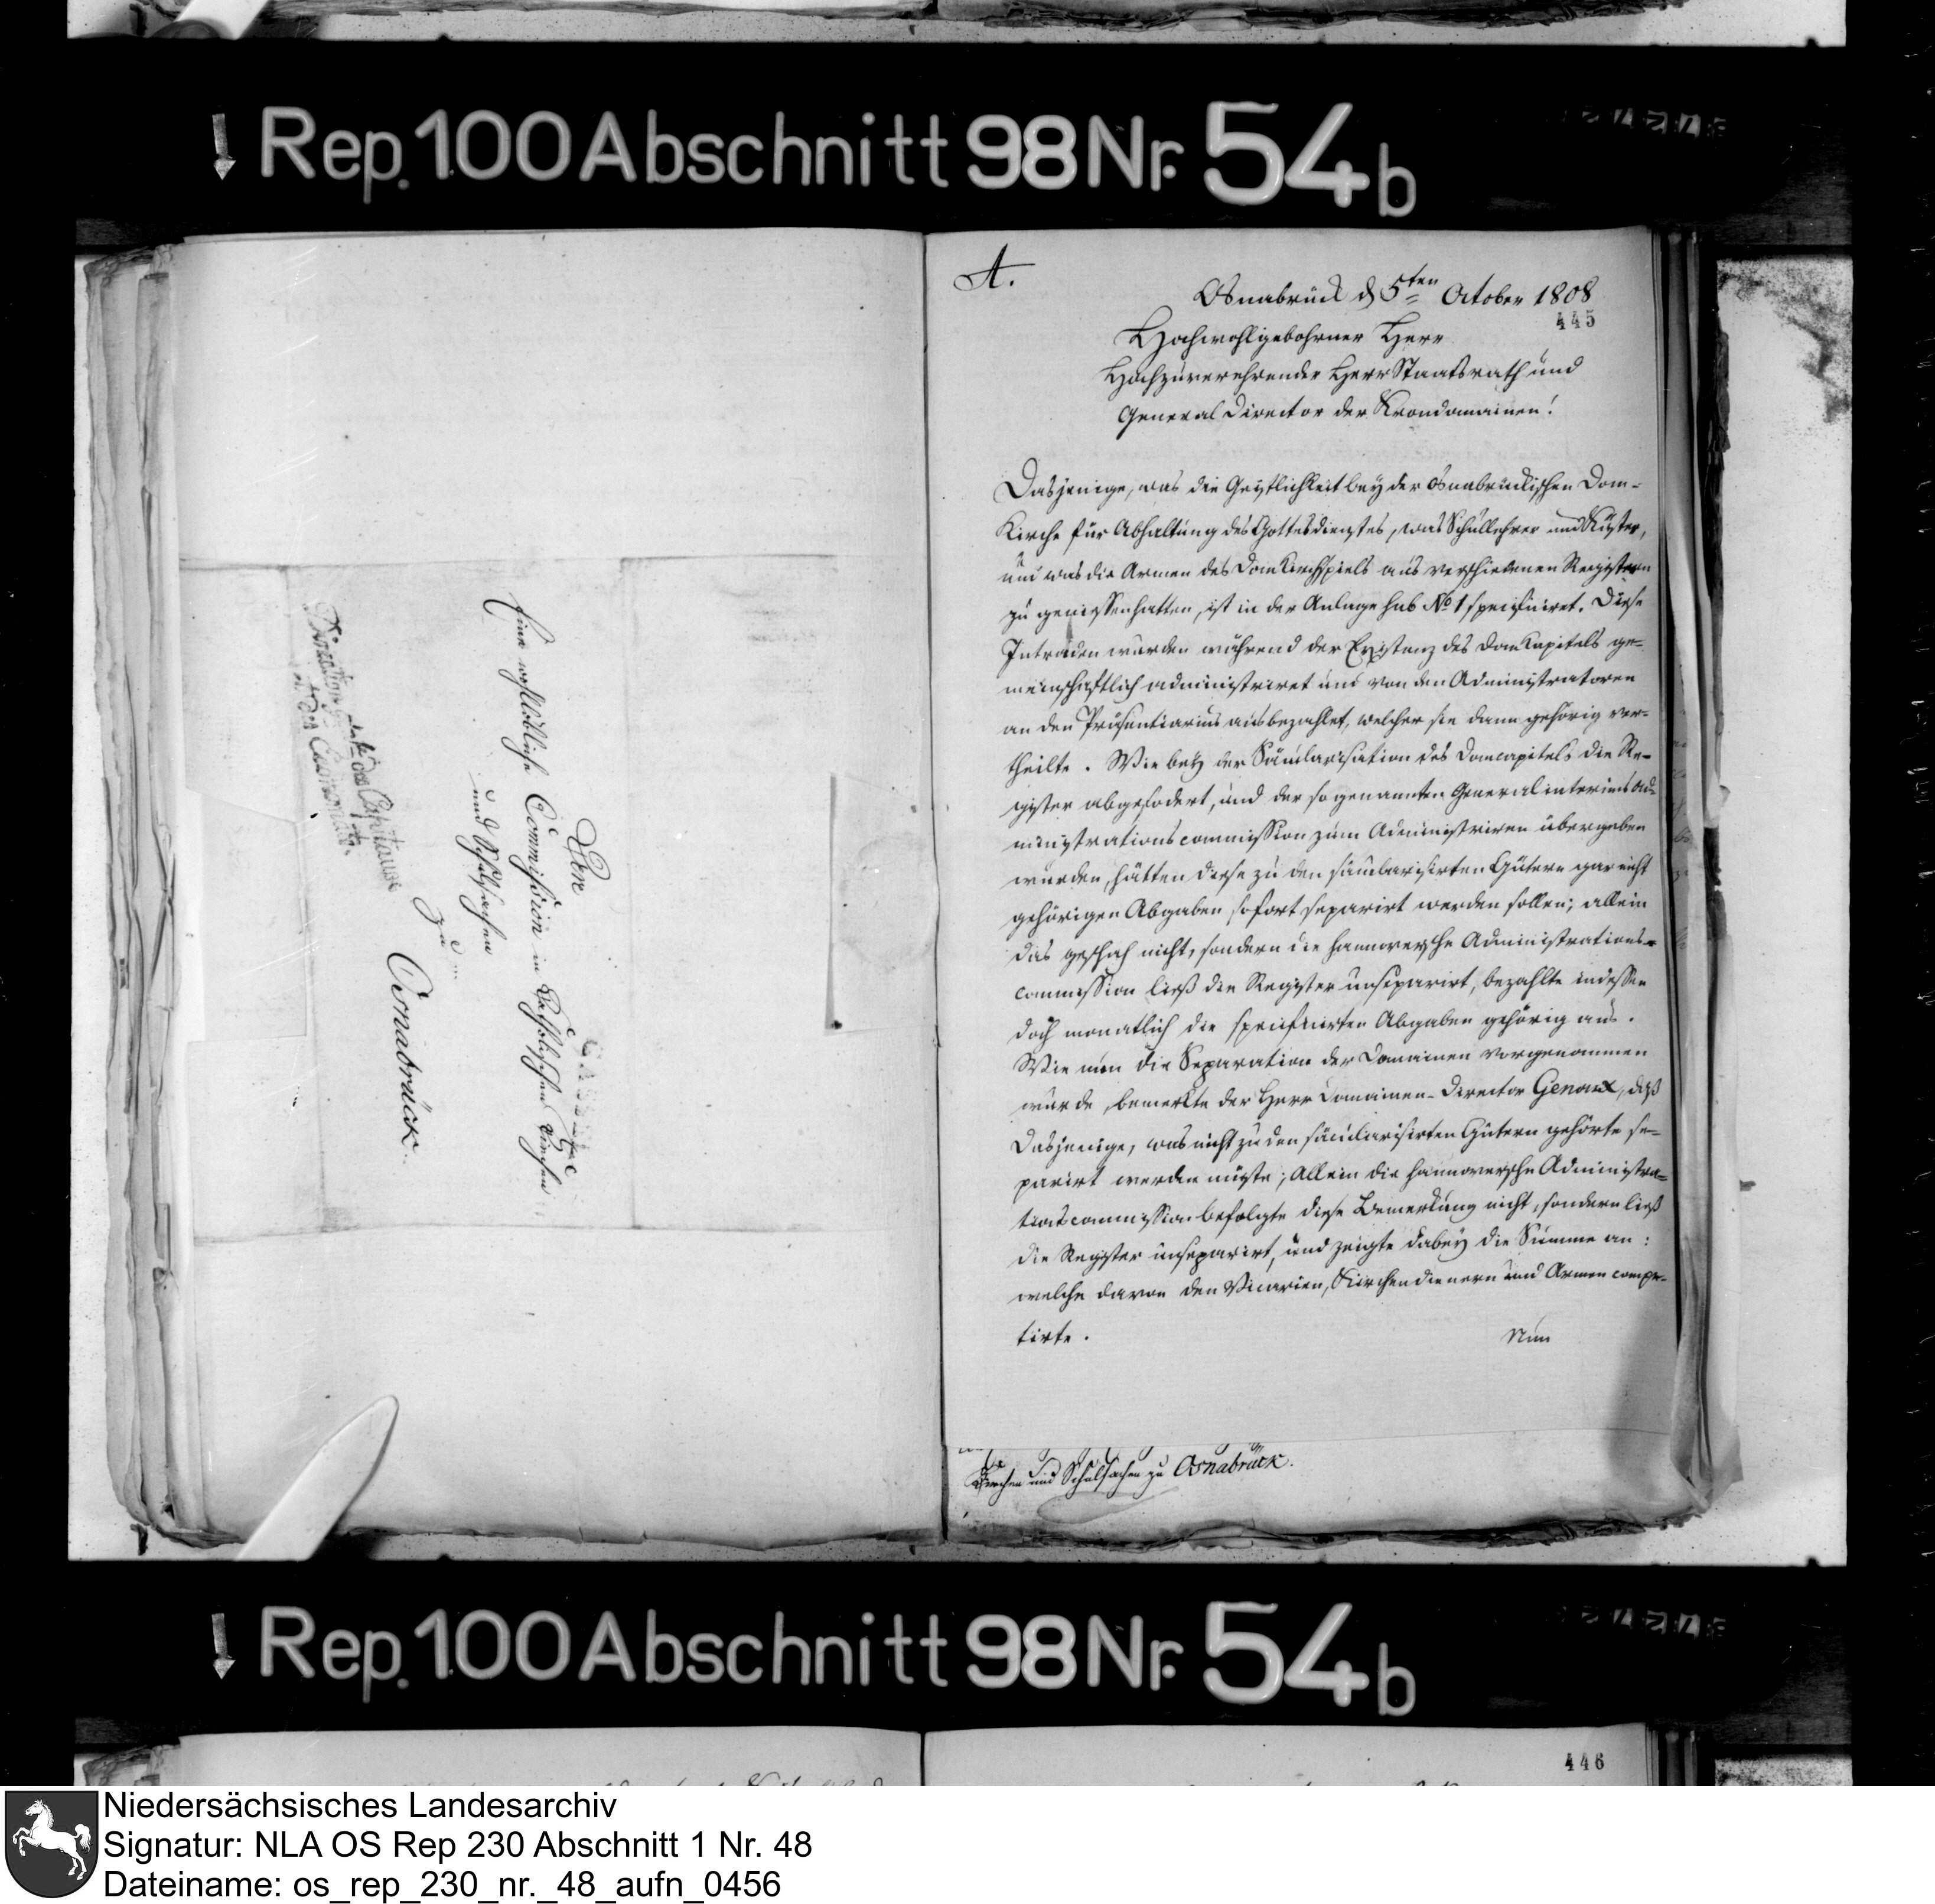 Rep. 100 Abschnitt 98 Nr. 54b
Der
Eine wohllöbliche Commission in Catholischen Kirchen
und Schulsachen
zu
Osnabrück.
A.
Osnabrück d 5ten October 1808
445
Hochwohlgebohrner Herr
Hochzuverehrender Herr Staatsrath und
General Director der Krondomainen!
Dasjenige, was die Geistlichkeit bey der Osnabrückischen Dom-
Kirche für Abhaltung des Gottesdienstes, was Schullehrer und Küster,
und was die Armen des DomKirchspiels aus verschiedenen Registern
zu geniessen hatten, ist in der Anlage sub No 1 specificiret. Diese
Intraden wurden während der Existenz des DomKapitels ge-
meinschaftlich administriret und von den Administratoren
an den Präsentiarius ausbezahlet, welcher sie dann gehörig ver-
theilte. Wie bey der Säcularisation des Domcapitels die Re-
gister abgefodert, und der sogenannten General interims ad-
ministrations commission zum Administriren übergeben
wurden, hätten diese zu den säcularisirten Gütern gar nicht
gehörigen Abgaben sofort separirt werden sollen; allein
das geschah nicht, sondern die hannoversche Administrations-
commission ließ die Register unseparirt, bezahlte indessen
doch monatlich die specificirten Abgaben gehörig aus.
Wie nun die Separation der Domainen vorgenommen
wurde, bemerkte der Herr Domainen-Director Genoux, daß
dasjenige, was nicht zu den säcularisirten Gütern gehörte se-
parirt werden müste; allein die hannoversche Administra-
tionscommission befolgte diese Bemerkung nicht, sondern ließ
die Register unseparirt, und zeigte dabey die Summe an:
welche davon den Vicarien, Kirchendienern und Armen compe-
tirte.
Nun
Kirchen und Schulsachen zu Osnabrück.
Rep. 100 Abschnitt 98 Nr. 54b
446
Niedersächsisches Landesarchiv
Signatur: NLA OS Rep 230 Abschnitt 1 Nr. 48
Dateiname: os_rep_230_nr._48_aufn_0456